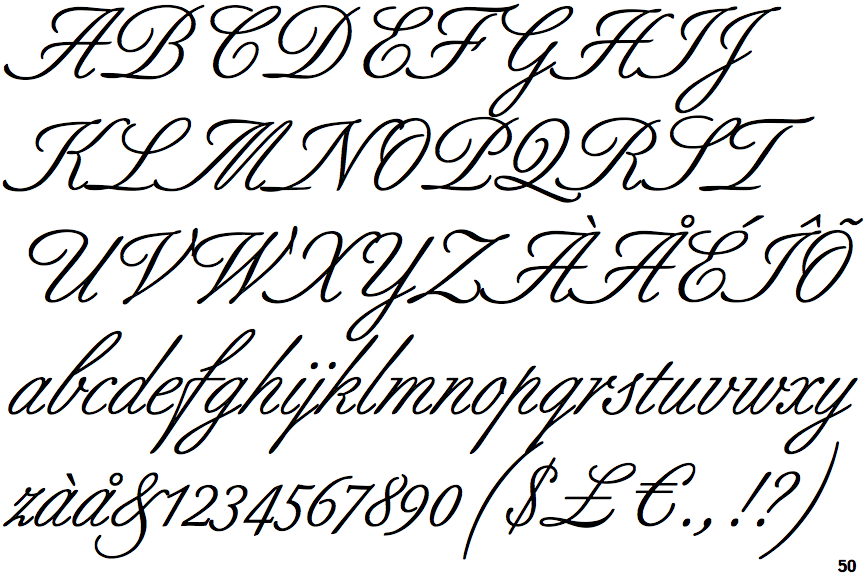 ABCDEFGHIJ
KLMNOPQRST
UVWXYZÀÅÉÎÕ
abcdefghijklmnopqrstuvwxy
zàå&1234567890($£€.,!?)
50